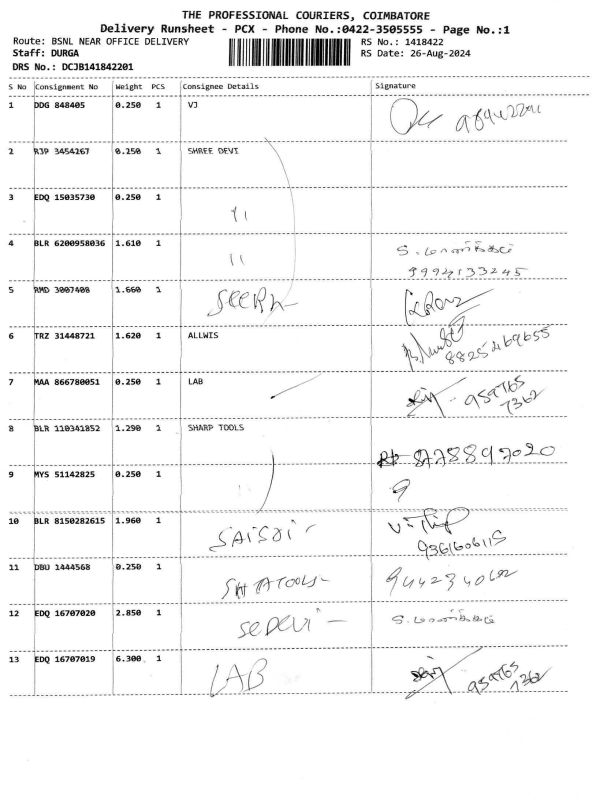 THE PROFESSIONAL COURIERS, COIMBATORE
Delivery Runsheet - PCX - Phone No.:0422-3505555 - Page No.:1
Route: BSNL NEAR OFFICE DELIVERY RS No.: 1418422
Staff: DURGA RS Date: 26-Aug-2024
DRS No.: DCJB141842201
S No Consignment No Weight PCS Consignee Details Signature
1 DDG 848405 0.250 1 VJ
2 RJP 3454267 0.250 1 SHREE DEVI
3 EDQ 15035730 0.250 1 11
4 BLR 6200958036 1.610 1 11 S.
9994133245
5 RMD 3007408 1.660 1
6 TRZ 31448721 1.620 1 ALLWIS
8825469655
7 MAA 866780051 0.250 1 LAB 959765
7362
8 BLR 110341852 1.290 1 SHARP TOOLS
8778897020
9 MYS 51142825 0.250 1 9
10 BLR 8150282615 1.960 1
9361606115
11 DBU 1444568 0.250 1
12 EDQ 16707020 2.850 1
13 EDQ 16707019 6.300 1 LAB 959765
7362